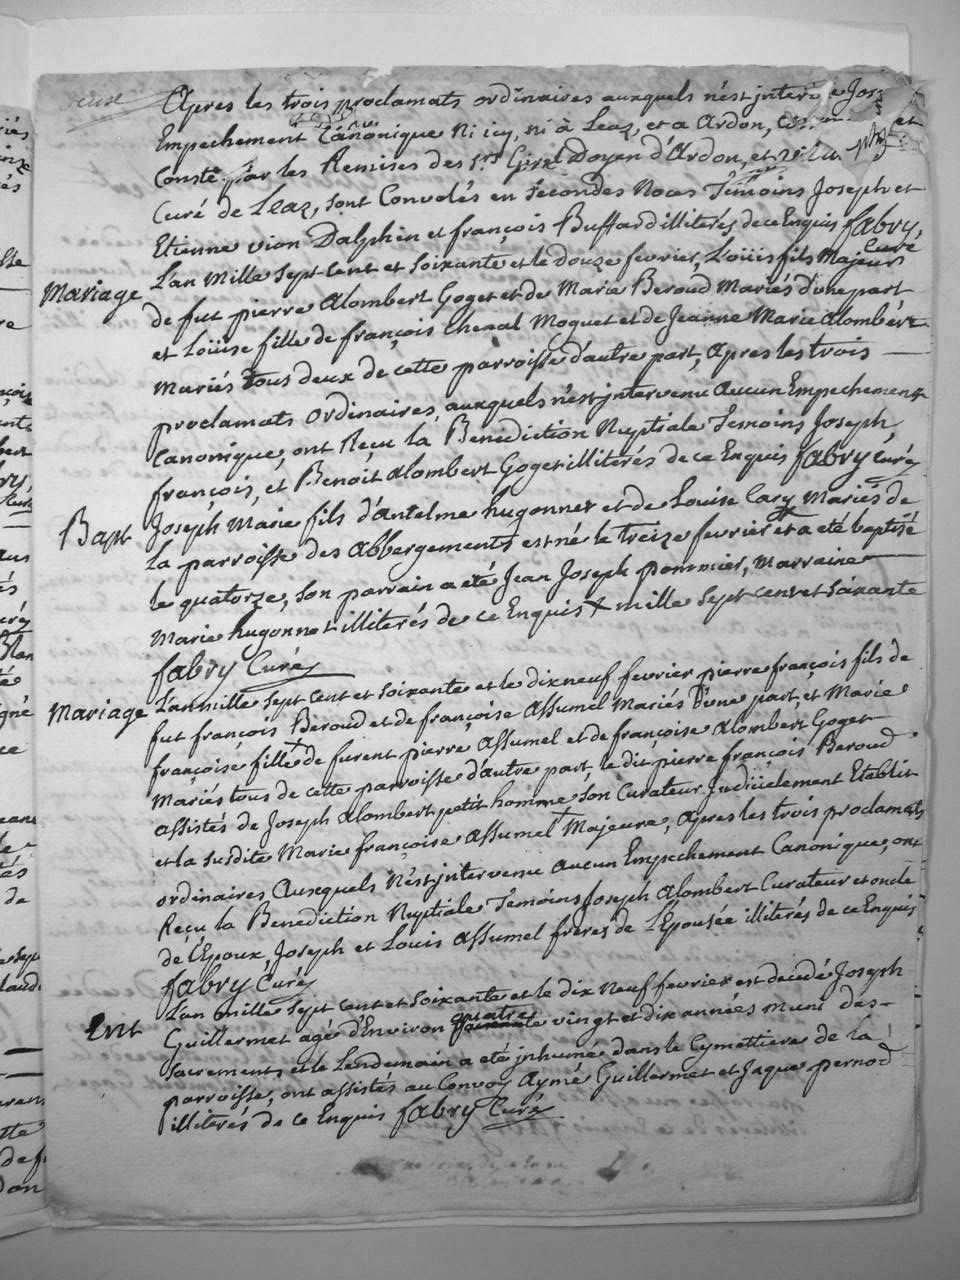 Apres les trois proclamats ordinaires auxquels n'est interve
Empechement Canonique Ni icy, ni à Leaz, et a Ardon, et
Conste par les Remises des Srs Girel Doyen d'Ardon, et
Curé de Leaz, sont Convolés en secondes Noces Témoins Joseph et
Etienne vion Dalphin et françois Buffard illiterés de ce Enquis fabry,
Curé
Mariage
L'an Mille Sept Cent et Soixante et le douze fevrier, Loüis fils Majeur
de fut pierre Alombert Goget et de Marie Beroud Mariés d'une part
et Loüise fille de françois Chenal Moquet et de Jeanne Marie Alombert
Mariés tous deux de cette parroisse d'autre part, Apres les trois
proclamats ordinaires, auxquels n'est intervenu Aucun Empechement
Canonique, ont Reçu la Benediction Nuptiale Temoins Joseph,
françois, et Benoit Alombert Goget illiterés de ce Enquis fabry Curé
Bapt
Joseph Marie fils d'antelme hugonnet et de Louise Cary Mariés de
la parroisse des Abbergements est né le treize fevrier et a eté baptisé
le quatorze, son parrain a eté Jean Joseph pommier, Marraine
Marie hugonnet illiterés de ce Enquis + mille sept cent et soixante
fabry Curé
Mariage
L'an mille sept cent et soixante et le dix neuf fevrier pierre françois fils de
fut françois Béroud et de françoise Assumel Mariés D'une part, et Marie
françoise fille de furent pierre Assumel et de françoise Alombert Goget
Mariés tous de cette parroisse d'autre part, le dit pierre françois Beroud
assistés de Joseph Alombert petit homme Son Curateur Judiiciement Etablit
et la susdite Marie françoise Assumel Majeure, Apres les trois proclamats
ordinaires Auxquels N'est intervenu Aucun Empechement Canonique, ont
Reçu la Benediction Nuptiale Témoins Joseph Alombert Curateur et oncle
de l'Epoux, Joseph et Louis Assumel freres de L'Epousée illiterés de ce Enquis
fabry Curé
Ent
L'an mille sept cent et soixante et le dix Neuf fevrier est decedé Joseph
Guillermet agé d'Environ quatre vingt et dix années muni des
sacrements et le Lendemain a eté inhumé dans le Cymettiere de la
parroisse, ont assistés au Convoy Aymé Guillermet et Jaque pernod
illiterés de ce Enquis fabry Curé